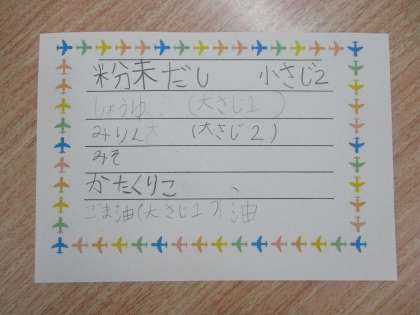 粉末だし 小さじ2
しょうゆ (大さじ1)
みりん (大さじ2)
みそ
かたくりこ
ごま油(大さじ1) 油